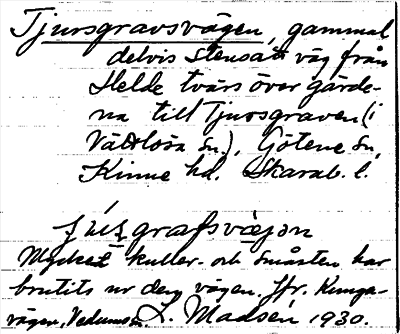 Tjursgravsvägen, gammal
delvis stensatt väg från
Helde tvärs över gärde-
na till Tjursgraven (i
Vättlösa sn.), Götene sn,
Kinne hd. Skarab. l.
grafsvæjən
Mycket kuller- och småsten har
brutits ur den vägen. Jfr. Kunga-
vägen, Vedums sn. L. Madsén 1930.